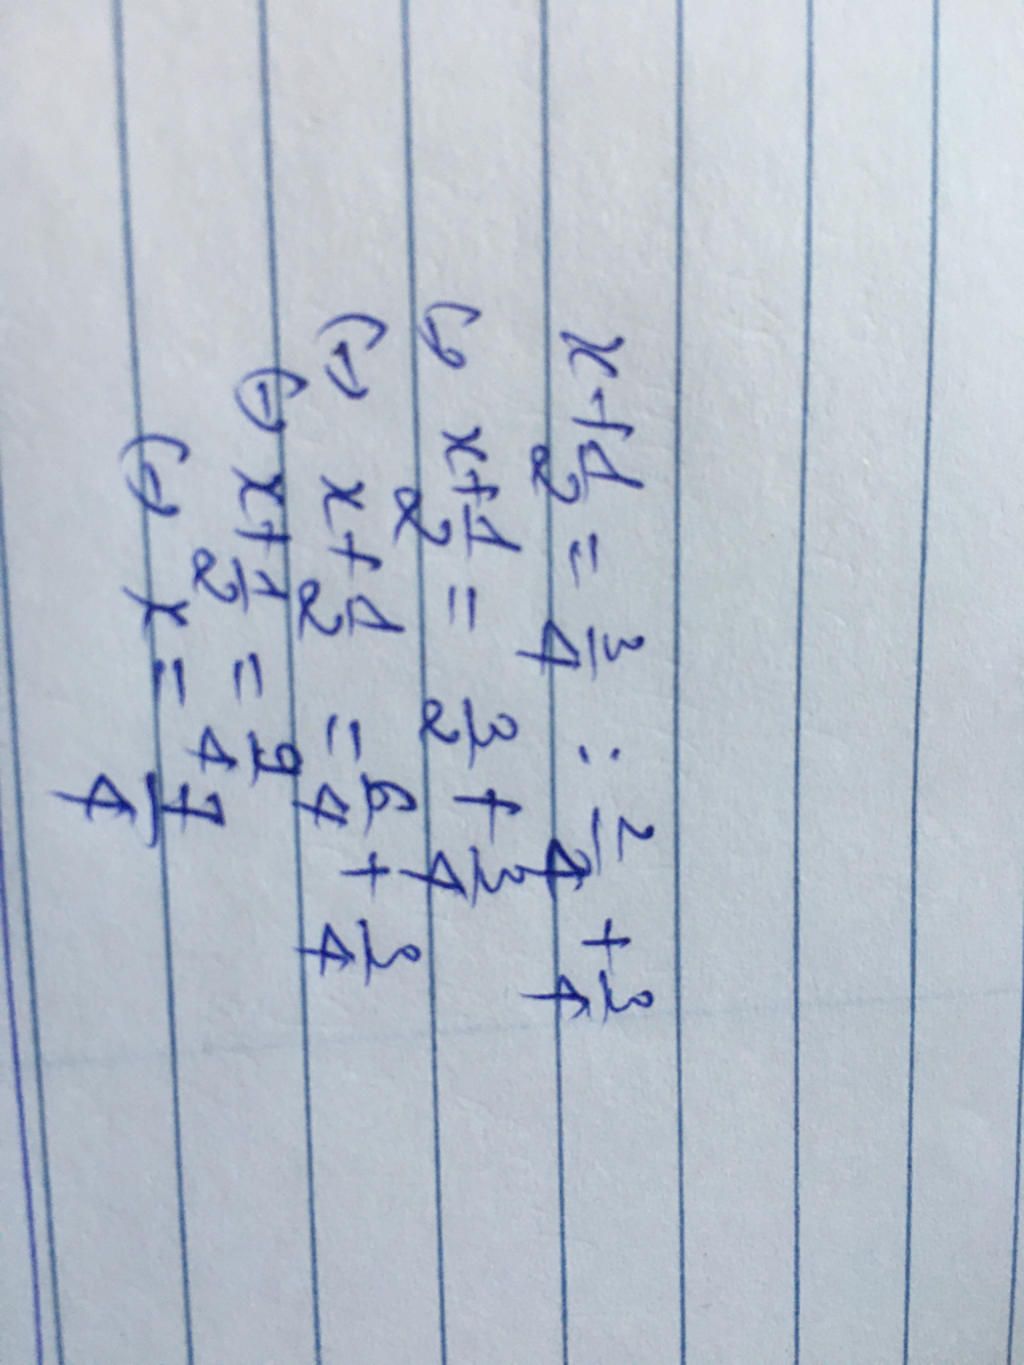 x + 1/2 = 3/4 : 2/4 + 3/4
(=) x + 1/2 = 3/2 + 3/4
(=) x + 1/2 = 6/4 + 3/4
(=) x + 1/2 = 9/4
(=) x = 7/4